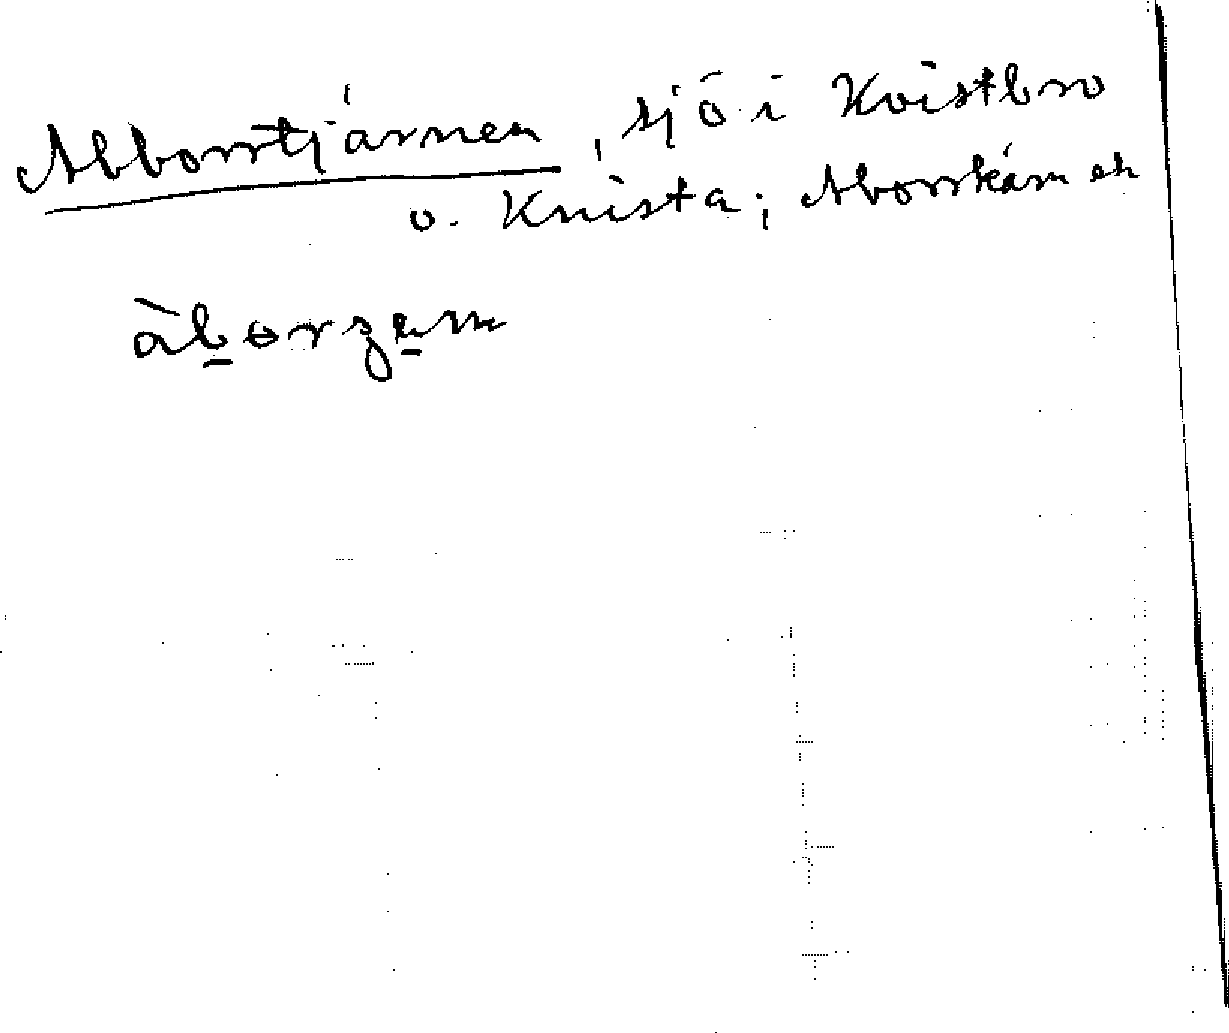 Abborrtjärnen, sjö i Kvistbro
o. Knista; Aborrkärn ek
àborzεm